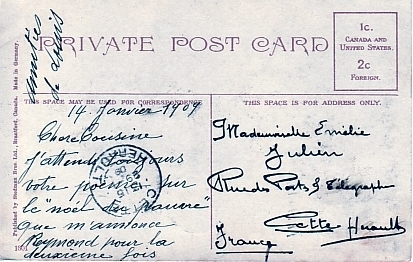 amitiés
de Louis
PRIVATE POST CARD
1c.
CANADA AND
UNITED STATES.
2c
FOREIGN.
THIS SPACE MAY BE USED FOR CORRESPONDENCE
THIS SPACE IS FOR ADDRESS ONLY.
14 Janvier 1909
Chère Cousine
J'attends toujours
votre sur
le "noël du pauvre"
que m'annonce
Reymond pour la
deuxième fois
Mademoiselle Emélie
Julien
Rue des Postes & Télégraphes
Cette Herault
France
Published by Stedman Bros Ltd., Brantford, Canada. Made in Germany.
1501